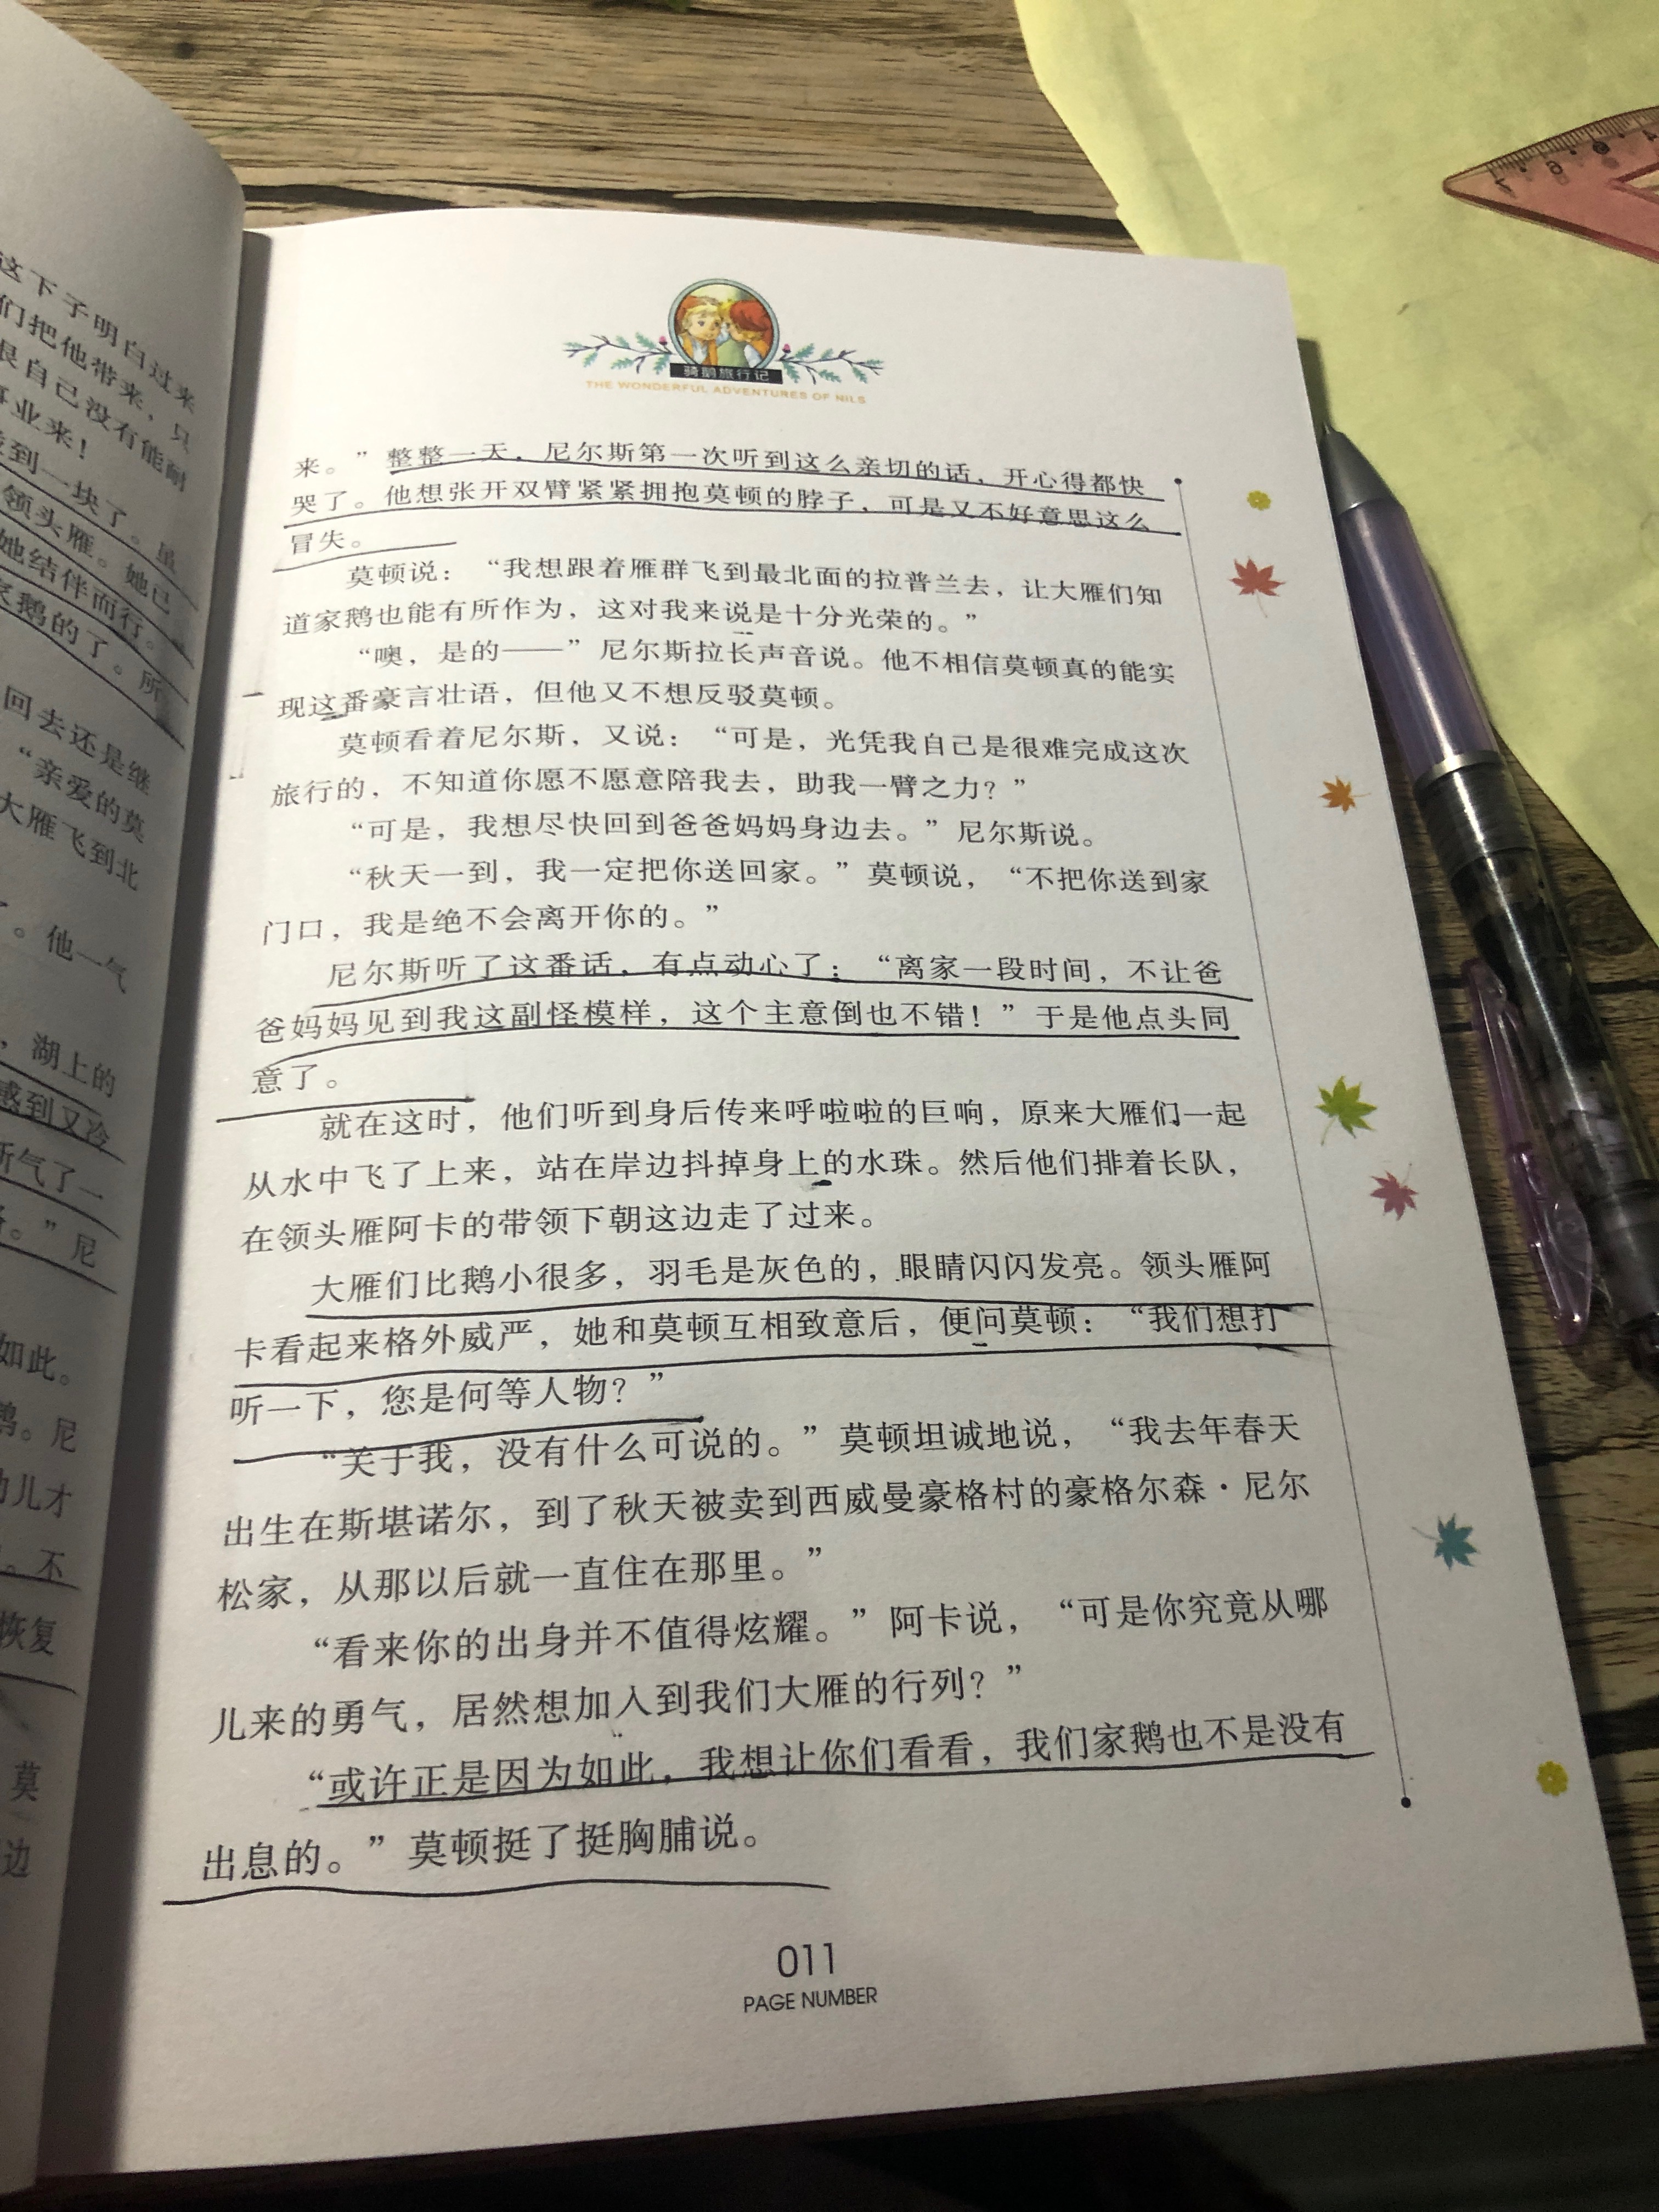 这下子明白过来
们把他带来，只
恨自己没有能耐
业来！
到一块了。虽
领头雁。她已
她结伴而行。
家鹅的了。所
回去还是继
“亲爱的莫
大雁飞到北
。他一气
，湖上的
感到又冷
所气了一
。”尼
如此。
鹅。尼
幼儿才
。不
恢复
莫
边
骑鹅旅行记
THE WONDERFUL ADVENTURES OF NILS
来。”整整一天，尼尔斯第一次听到这么亲切的话，开心得都快
哭了。他想张开双臂紧紧拥抱莫顿的脖子，可是又不好意思这么
冒失。
莫顿说：“我想跟着雁群飞到最北面的拉普兰去，让大雁们知
道家鹅也能有所作为，这对我来说是十分光荣的。”
“噢，是的——”尼尔斯拉长声音说。他不相信莫顿真的能实
现这番豪言壮语，但他又不想反驳莫顿。
莫顿看着尼尔斯，又说：“可是，光凭我自己是很难完成这次
旅行的，不知道你愿不愿意陪我去，助我一臂之力？”
“可是，我想尽快回到爸爸妈妈身边去。”尼尔斯说。
“秋天一到，我一定把你送回家。”莫顿说，“不把你送到家
门口，我是绝不会离开你的。”
尼尔斯听了这番话，有点动心了：“离家一段时间，不让爸
爸妈妈见到我这副怪模样，这个主意倒也不错！”于是他点头同
意了。
就在这时，他们听到身后传来呼啦啦的巨响，原来大雁们一起
从水中飞了上来，站在岸边抖掉身上的水珠。然后他们排着长队，
在领头雁阿卡的带领下朝这边走了过来。
大雁们比鹅小很多，羽毛是灰色的，眼睛闪闪发亮。领头雁阿
卡看起来格外威严，她和莫顿互相致意后，便问莫顿：“我们想打
听一下，您是何等人物？”
“关于我，没有什么可说的。”莫顿坦诚地说，“我去年春天
出生在斯堪诺尔，到了秋天被卖到西威曼豪格村的豪格尔森·尼尔
松家，从那以后就一直住在那里。”
“看来你的出身并不值得炫耀。”阿卡说，“可是你究竟从哪
儿来的勇气，居然想加入到我们大雁的行列？”
“或许正是因为如此，我想让你们看看，我们家鹅也不是没有
出息的。”莫顿挺了挺胸脯说。
011
PAGE NUMBER